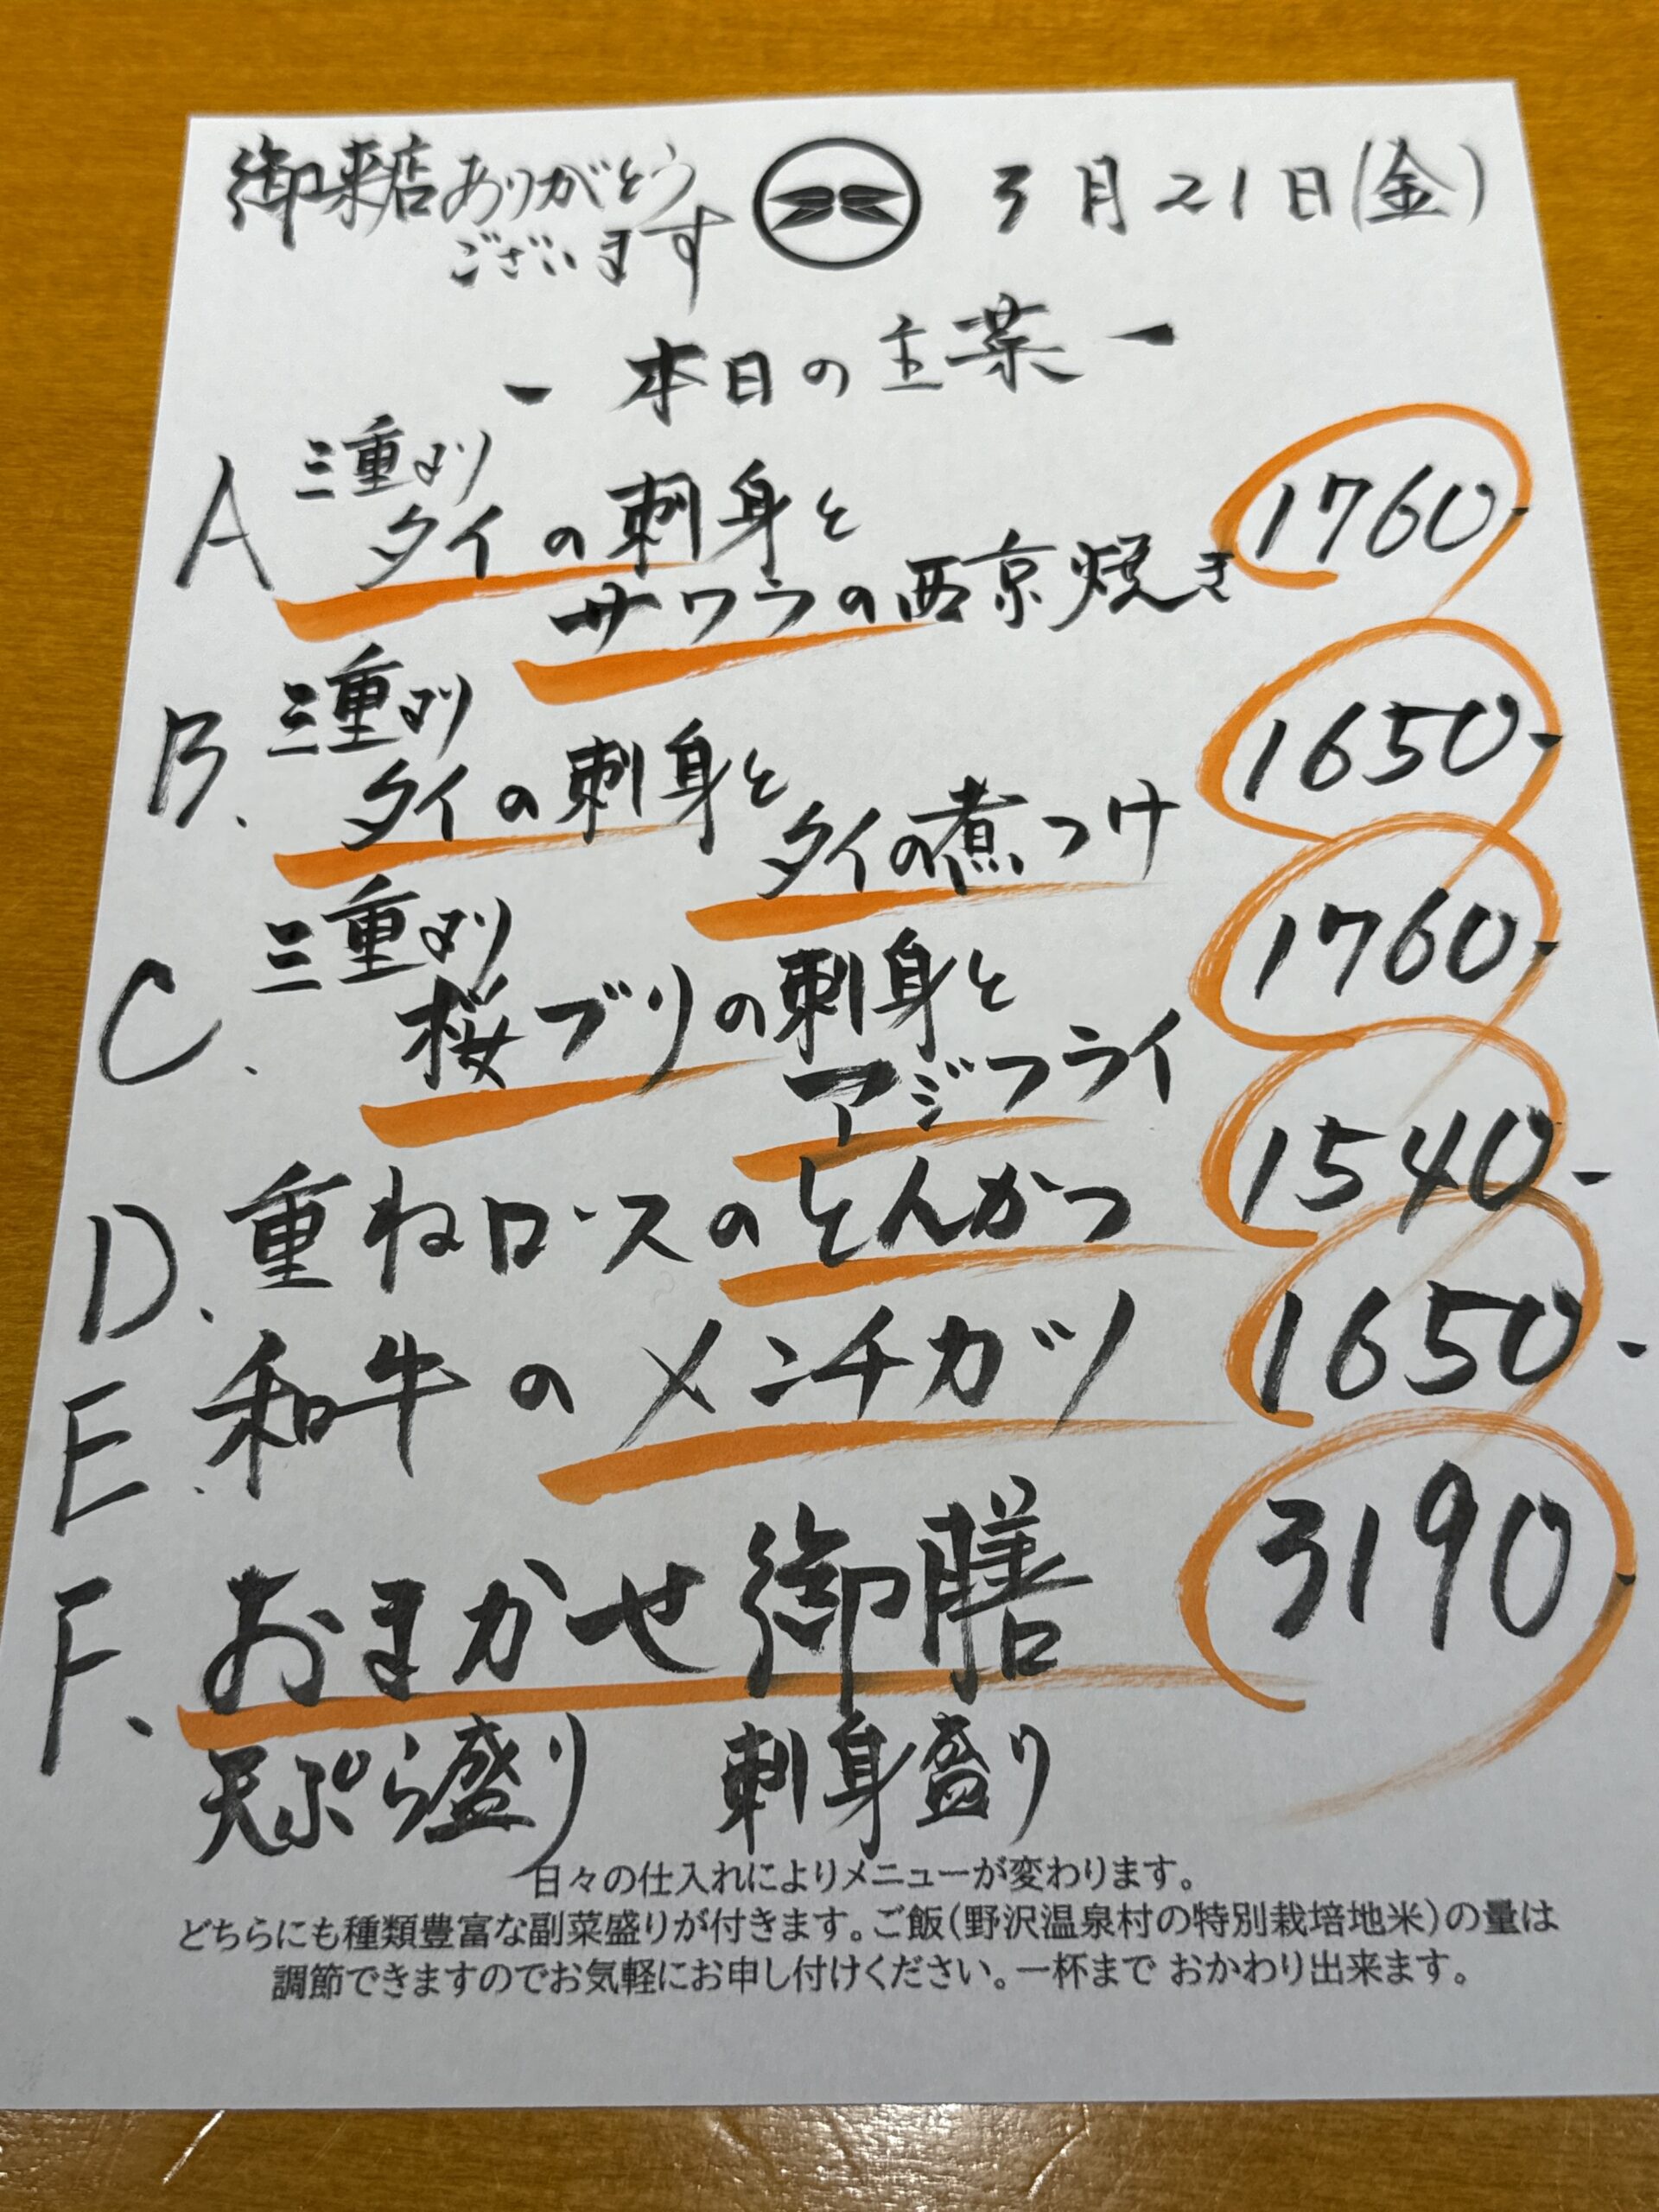 御来店ありがとう
ございます
3月21日(金)
- 本日の主菜 -
A 三重より
タイの刺身と
サワラの西京焼き
1760-
B. 三重より
タイの刺身と
タイの煮つけ
1650-
C. 三重より
桜ブリの刺身と
アジフライ
1760-
D. 重ねロースのとんかつ 1540-
E. 和牛のメンチカツ 1650-
F. おまかせ御膳 3190-
天ぷら盛り 刺身盛り
日々の仕入れによりメニューが変わります。
どちらにも種類豊富な副菜盛りが付きます。ご飯(野沢温泉村の特別栽培地米)の量は
調節できますのでお気軽にお申し付けください。一杯まで おかわり出来ます。